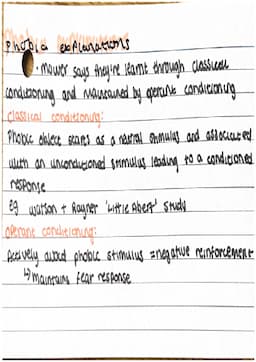 Phobia explanations
• Mowrer says they're learnt through classical
conditioning and maintained by operant conditioning
Classical conditioning:
Phobic object starts as a neutral stimulus and associated
with an unconditioned stimulus leading to a conditioned
response
eg Watson + Rayner 'Little Albert' study
Operant conditioning:
Actively avoid phobic stimulus = negative reinforcement
↳ maintains fear response